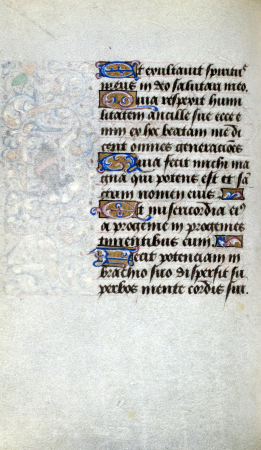 Et exultauit spiritus
meus in deo salutari meo.
Quia respexit humi
litatem ancille sue ecce e
nim ex hoc beatam me di
cent omnes generationes
Quia fecit michi ma
gna qui potens est et sa
ctum nomen eius.
Et misericordia ei
a progenie in progenies
timentibus eum.
Fecit potenciam in
brachio suo dispersit su
perbos mente cordis sui.